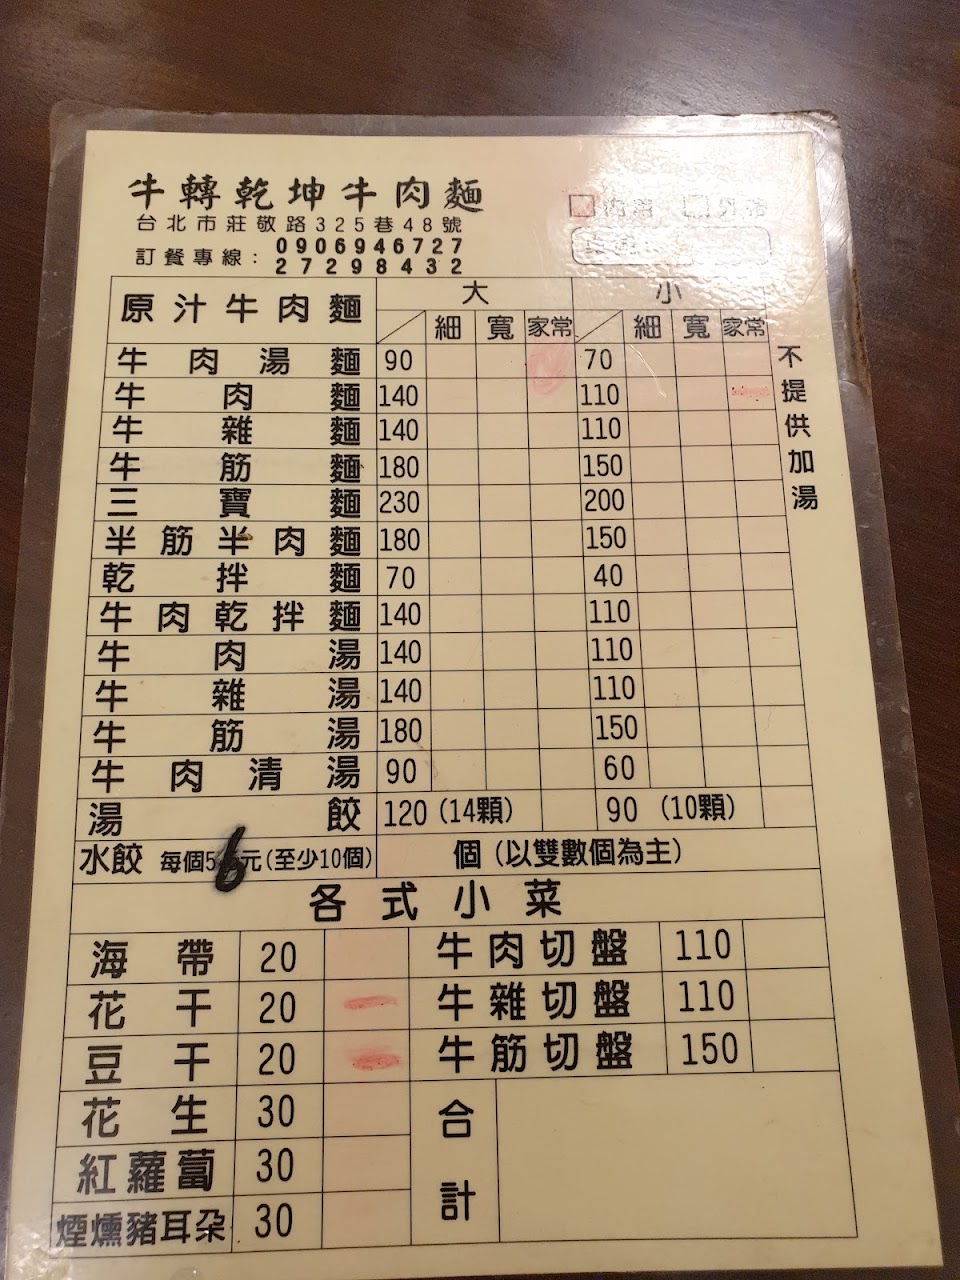 牛轉乾坤牛肉麵
台北市莊敬路325巷48號
訂餐專線：0906946727
27298432
內用 外帶
原汁牛肉麵 大 小
細 寬 家常 細 寬 家常
牛肉湯麵 90 70
牛肉麵 140 110
牛雜麵 140 110
牛筋麵 180 150
三寶麵 230 200
半筋半肉麵 180 150
乾拌麵 70 40
牛肉乾拌麵 140 110
牛肉湯 140 110
牛雜湯 140 110
牛筋湯 180 150
牛肉清湯 90 60
湯餃 120 (14顆) 90 (10顆)
水餃 每個5 6元(至少10個) 個 (以雙數個為主)
不提供加湯
各式小菜
海帶 20 牛肉切盤 110
花干 20 牛雜切盤 110
豆干 20 牛筋切盤 150
花生 30 合計
紅蘿蔔 30
煙燻豬耳朵 30